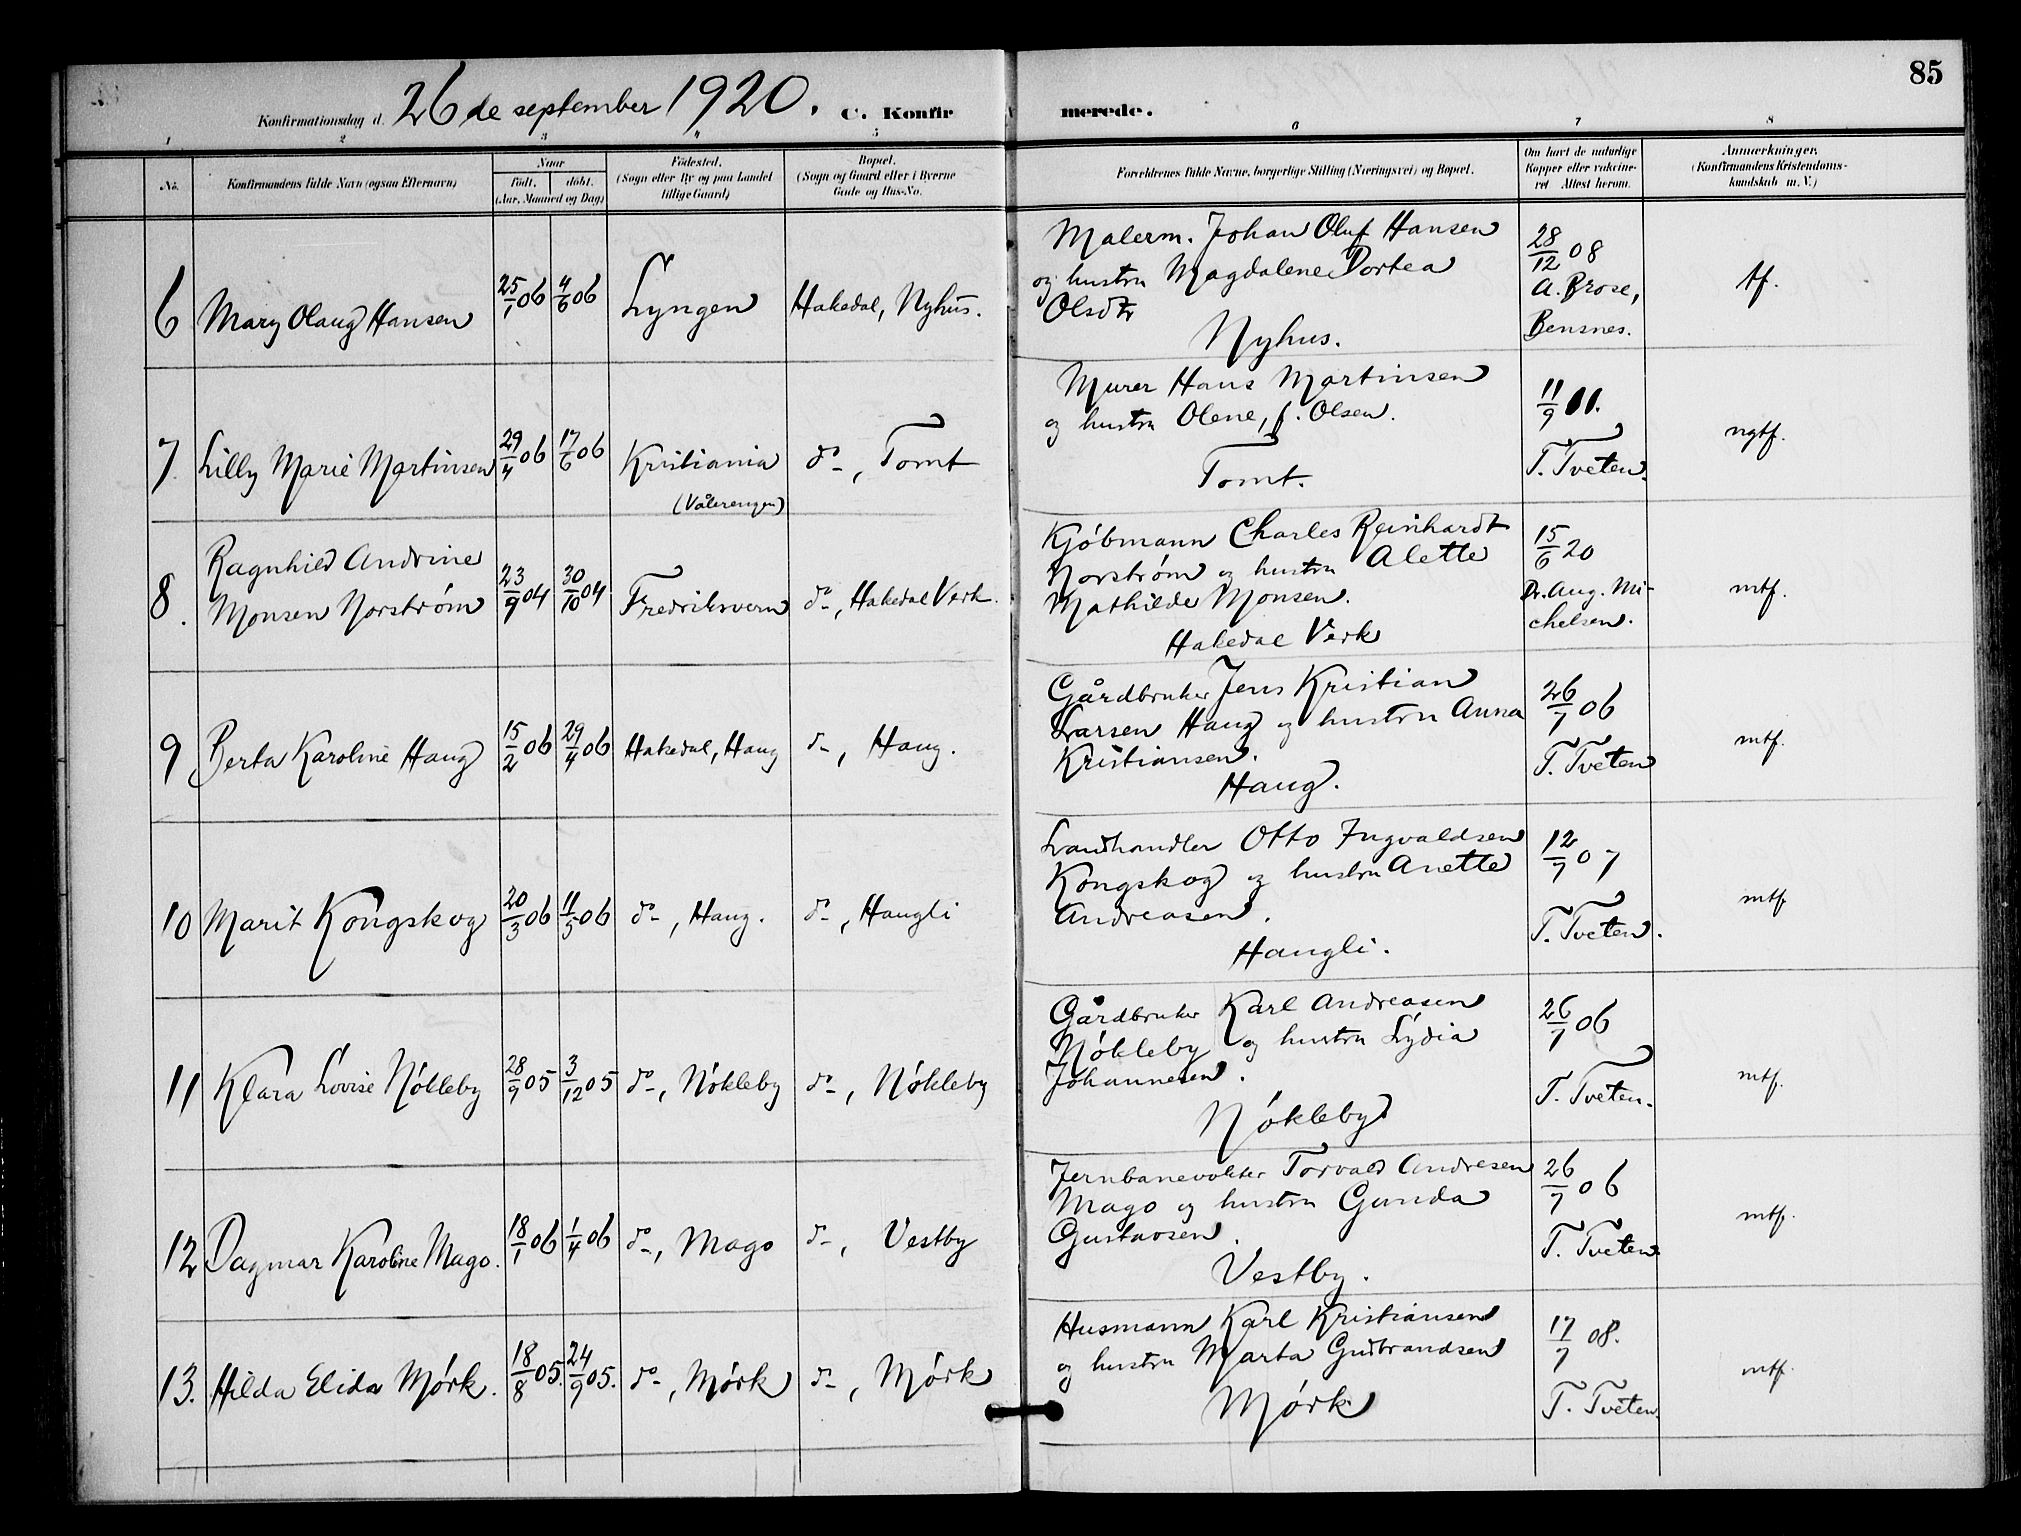 85
Konfirmationsdag d. 26de september 1920. C. Konfirmerede.
1 2 3 4 5 6 7 8
No.
Konfirmandens fulde Navn (ogsaa Efternavn)
Naar
født. døbt.
(Aar, Maaned og Dag)
Fødested.
(Sogn eller By og paa Landet
tillige Gaard)
Bopæl.
(Sogn og Gaard eller i Byerne
Gade og Hus-No.
Forældrenes fulde Navne, borgerlige Stilling (Næringsvei) og Bopæl.
Om havt de naturlige
Kopper eller vakcine-
ret Attest herom.
Anmærkninger.
(Konfirmandens Kristendoms-
kundskab m. V.)
6 Mary Olaug Hansen 25/1 06 4/6 06 Lyngen Hakedal, Nyhus.
Malerm. Johan Oluf Hansen
og hustru Magdalene Dortea
Olsdtr
Nyhus.
28/12 08
A. Brose,
Bensnes.
tf.
7. Lilly Marie Martinsen 29/4 06 17/6 06 Kristiania do-, Tomt
(Vålerengen)
Murer Hans Martinsen
og hustru Olene, f. Olsen.
Tomt.
11/9 11.
T. Tveten.
ngtf.
8. Ragnhild Andrine
Monsen Norstrøm 23/9 04 30/10 04 Fredriksvern do-, Hakedal Verk.
Kjøbmann Charles Reinhardt
Norstrøm og hustru Alette
Mathilde Monsen.
Hakedal Verk
15/6 20
Dr. Aug. Mi-
chelsen.
mtf.
9 Berta Karoline Haug 15/2 06 29/4 06 Hakedal, Haug do-, Haug.
Gårdbruker Jens Kristian
Larsen Haug og hustru Anna
Kristiansen.
Haug.
26/7 06
T. Tveten
mtf.
10 Marit Kongskog 20/3 06 11/5 06 do-, Haug. do-, Haugli
Landhandler Otto Ingvaldsen
Kongskog og hustru Anette
Andreasen.
Haugli.
12/7 07
T. Tveten.
mtf
11 Klara Lovise Nökleby 28/9 05 3/12 05 do-, Nökleby do-, Nökleby
Gårdbruker Karl Andreasen
Nökleby og hustru Lydia
Johannesen.
Nökleby
26/7 06
T. Tveten.
mtf.
12 Dagmar Karoline Mago. 18/1 06 1/4 06 do-, Mago do-, Vestby
Jernbanevokter Torvald Andresen
Mago og hustru Gunda
Gustavsen.
Vestby.
26/7 06
T. Tveten.
mtf.
13. Hilda Elida Mørk. 18/8 05. 24/9 05. do-, Mørk do-, Mørk
Husmann Karl Kristiansen
og hustru Marta Gudbrandsen
Mørk
17/7 08.
T. Tveten.
mtf.